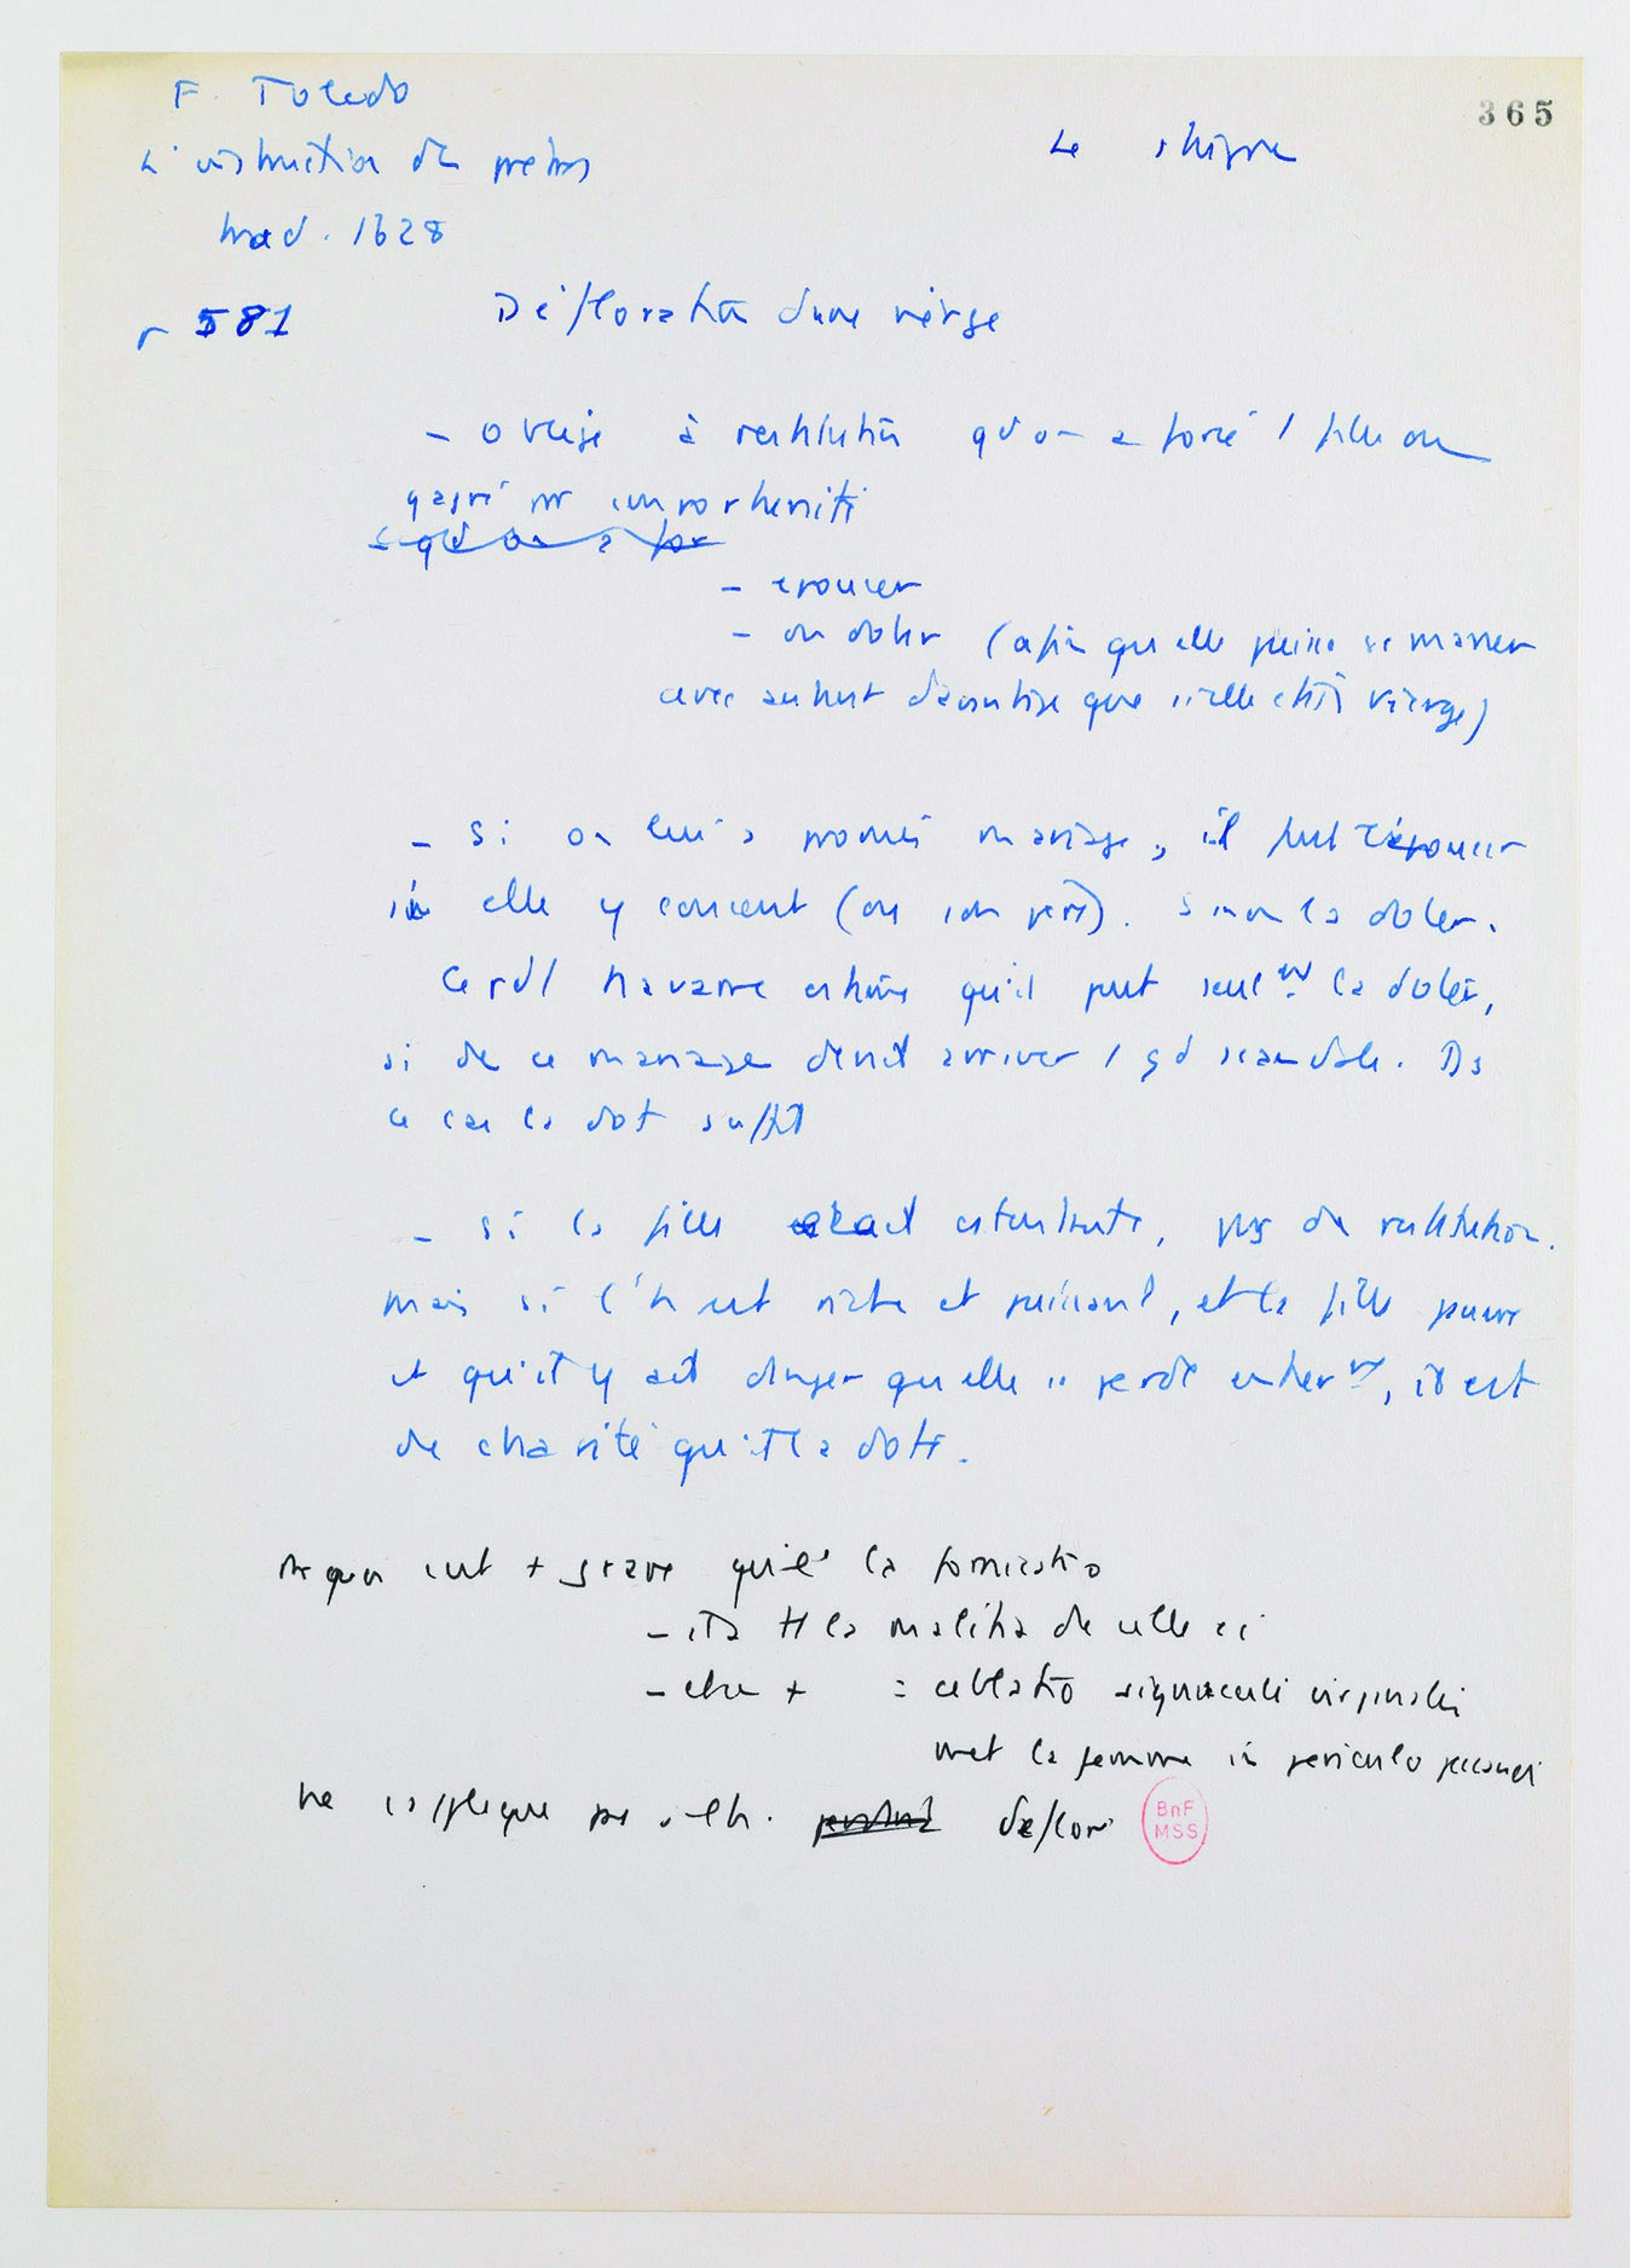 F. Toledo
365
L'instruction des prêtres
Le stupre
trad. 1628
p 581
Défloration d'une vierge
- oblige à restitution qd on a forcé 1 fille ou
gagné par importunité
qd on a for
- épouser
- ou doter (afin qu elle puisse se marier
avec autant d'avantage que si elle était vierge)
- Si on lui a promis mariage, il faut l'épouser
si elle y consent (ou son père). Sinon la doter.
Cepdt Navarre estime qu'il peut seulnt la doter,
si de ce mariage devait arriver 1 gd scandale. Ds
ce cas la dot suffit
- si la fille était consentante, pas de restitution.
mais si l'h est riche et puissant, et la fille pauvre
et qu'il y ait danger qu elle se perde entiernt, il est
de charité qu'il la dote.
+ grave que la fornicatio
- ita tt la malitia de celle ci
- + = ablatio signaculi virginalis
met la femme in periculo peccandi
ne s'applique deflor
BnF
MSS